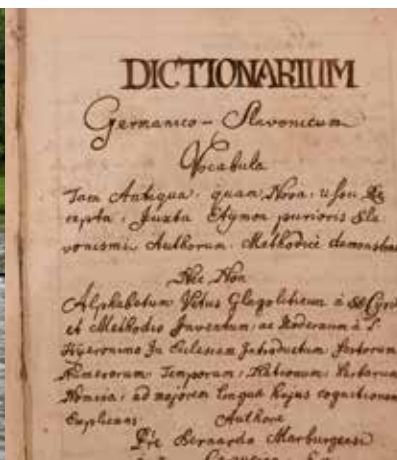 DICTIONARIUM
Germanico-Slavonicum
Vocabula
Tam Antiqua, quam Nova, usu Re
cepta, Juxta Etymon purioris Sla
vonismi Authorum Methodice demonstrans
Nec Non
Alphabetum Vetus Glagoliticum à SS Cyrillo
et Methodio Inventum, ac Modernum à S
Hyeronimo In Ecclesiam Introductum
Numerorum, Temporum, Verborum
ad majorem Linguæ Hujus cognitionem
Explicans. Authore
Pre Bernardo Marburgensi